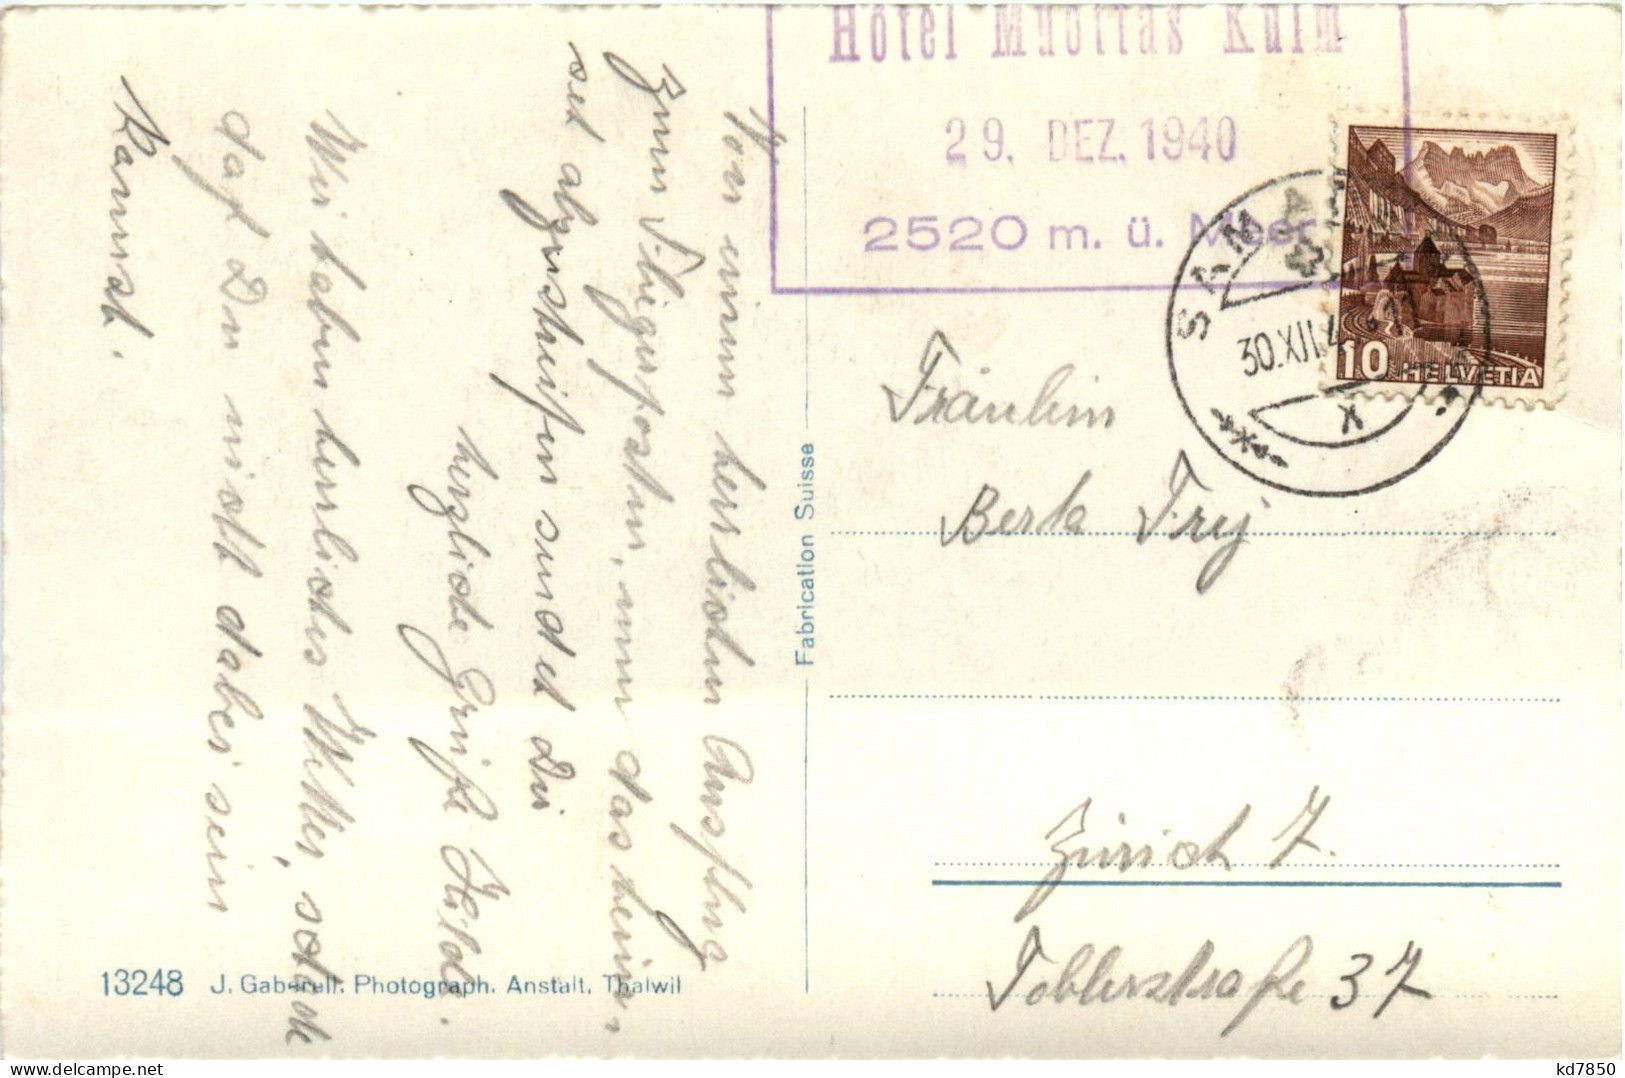 Hotel Muottas Kulm
29. DEZ. 1940
2520 m. ü. Meer
SAM
30.XII.4
X
10 HELVETIA
Von einem herrlichen Ausflug
zum
und abzustreifen sendet Dir
herzliche Grüße Hilde.
Wir haben herrliches Wetter, schade
daß Du nicht dabei sein
kannst.
Fabrication Suisse
Fräulein
Berta Frey
Zürich 7.
Toblerstraße 37
13248 J. Gaberell, Photograph. Anstalt, Thalwil
kd7850